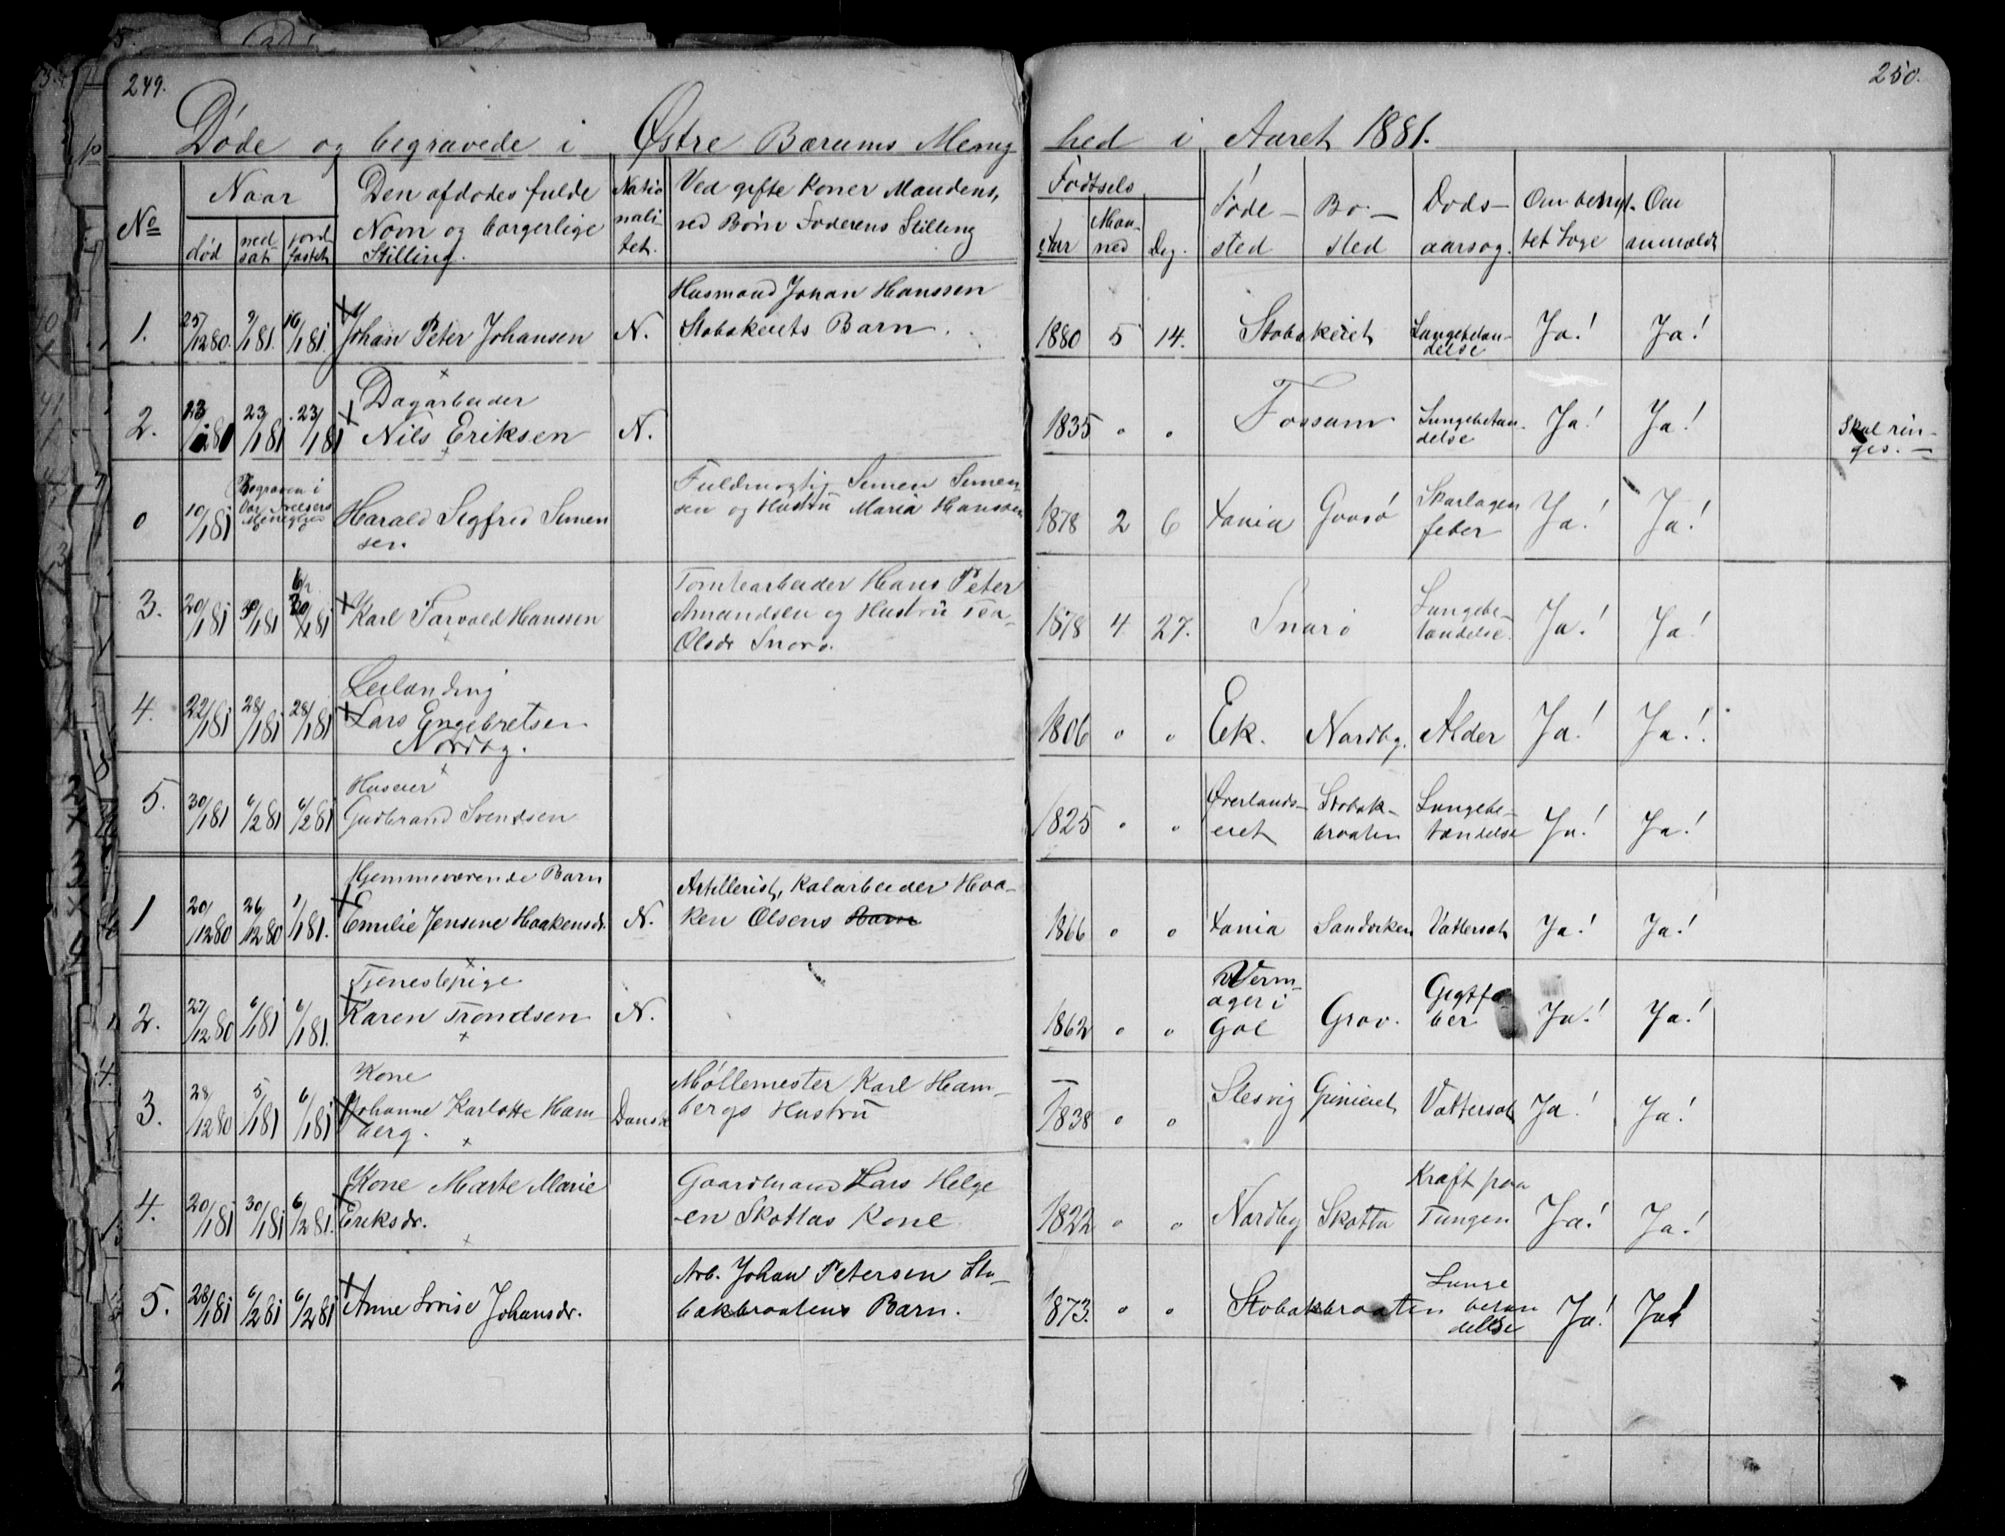 249.
250.
Døde og begravede i Østre Bærums Menig
hed i Aaret 1881.
No
Naar
død
ned
sat
jord
fæstet
Den afdødes fulde
Navn og borgerlige
Stilling.
Natio
nali
tet.
Ved gifte Koner Mandens,
ved Børn Faderens Stilling
Fødsels
Aar
Maa-
ned
Dag.
Føde-
sted
Bo-
sted
Døds-
aarsag.
Om benyt-
tet Læge
Om
anmeldt
1. 25/1280. 9/181. 16/181.
Johan Peter Johansen
N.
Husmand Johan Hanssen
Stabækeiets Barn.
1880 5 14. Stabækeiet
Lungebetæn-
delse
Ja! Ja!
2. 23/181 23/181
Dagarbeider
Nils Eriksen
N.
1835 " " Fossum
Lungebetæn-
delse
Ja! Ja!
Skal rin-
ges.
0 10/181
Begraven i
Harald Sigfred Simen
sen
Fuldmægtig Simen Simen-
sen og Hustru Maria Hanssen
1878 2 6 Xania Gaasø
Skarlagen
feber
Ja! Ja!
3. 20/181 /181
Karl Torvald Hanssen
Tomtearbeider Hans Peter
Amandsen og Hustru Tea
Olsdr Snarø.
1878 4 27. Snarø
Lungebe-
tændelse.
Ja! Ja!
4. 22/181 28/181 28/181
Leilænding
Lars Engebretsen
Nordby.
1806 " " Ek. Nordby. Alder Ja! Ja!
5. 30/181 6/281 6/281
Huseier
Gudbrand Svendsen
1825 " "
Øverlands-
eiet
Stabæk-
braaten
Lungebe-
tændelse
Ja! Ja!
1 20/1280 26/1280 1/181.
Hjemmeværende Barn
Emilie Jensine Haakensdr.
N.
Artillerist, Kalarbeider Haa-
ken Olsens Barn
1866 " " Xania Sandviken Vattersot Ja! Ja!
2. 27/1280 6/181 6/181.
Tjenestepige
Karen Trondsen
N.
1862 " "
ager i
Gol
Grav.
Gigtfe
ber
Ja! Ja!
3. 28/1280 5/181 6/181
Kone
Johanne Karlotte Ham-
berg.
Dansk
Møllemester Karl Ham-
bergs Hustru
1838 " " Slesvig Grinieiet Vattersot Ja! Ja!
4. 20/181 30/181 6/281.
Kone Marte Marie
Eriksdr.
Gaardbrand Lars Helge
en Skottas Kone
1822 " " Nordby Skotta
Kræft paa
Tungen
Ja! Ja!
5. 28/181 6/281 6/281
Anne Lovise Johansdr.
Arb. Johan Petersen Sta-
bækbraatens Barn.
1873. " " Stabækbraaten
Lunge
betæn
delse
Ja! Ja!